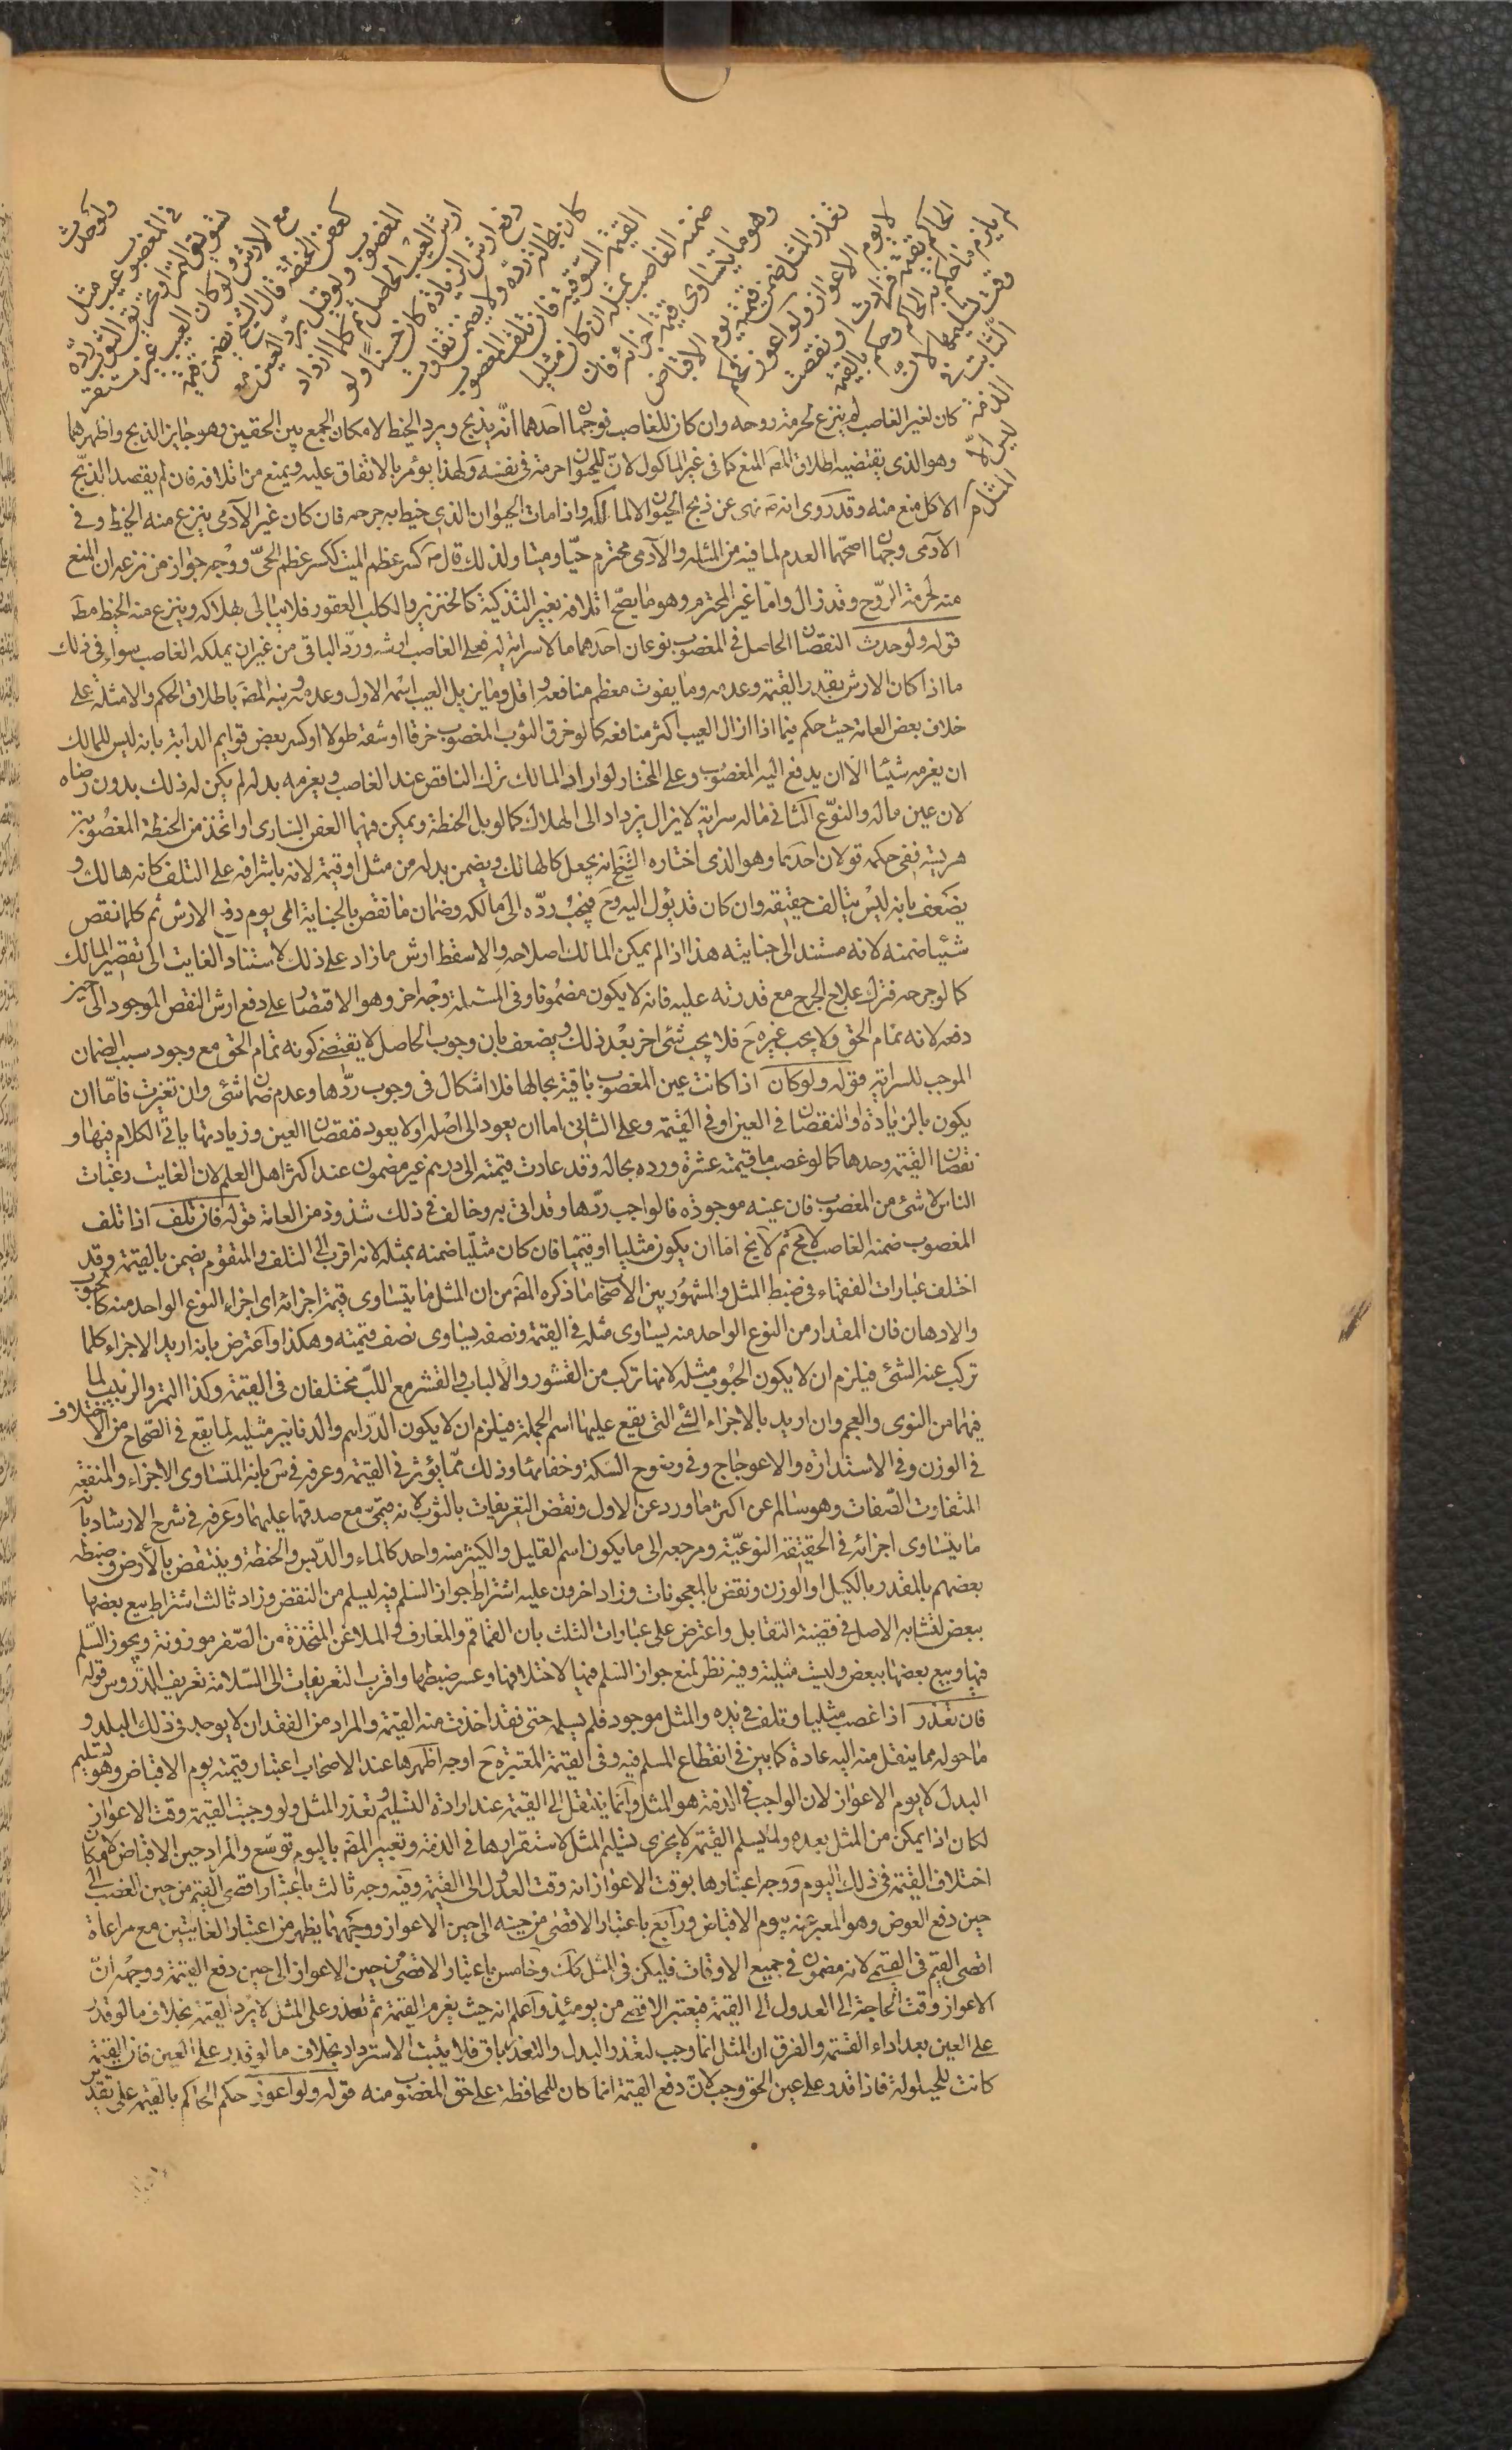 ولو حدث
في المغصوب عيب مثل
تسويس التمر او تخرق الثوب ردّه
مع الارش ولو كان العيب غير مستقر
كعفن الحنطة قال الشيخ يضمن قيمة
المغصوب ولو قيل بردّ العين مع
ارش العيب الحاصل ثم كلما ازداد
دفع ارش الزيادة كان حسنا ولو
كان بحاله ردّه ولا يضمن تفاوت
القيمة السوقية فان تلف المغصوب
ضمنه الغاصب بمثله ان كان مثليا
وهو ما يتساوى قيمة اجزائه فان
تعذر المثل ضمن قيمته يوم الاقباض
لا يوم الاعواز ولو اعوز فحكم
الحاكم بقيمته فزادت او نقصت
لم يلزم ما حكم به الحاكم وحكم بالقيمة
وقت تسليمها لان
الثابت في
الذمة
ليس الا
المثل
كان لغير الغاصب لم ينزع لحرمة روحه وان كان للغاصب فوجهان احدهما انّه يذبح ويرد الخيط لامكان الجمع بين الحقين وهو جايز الذبح واظهرهما
وهو الذي يقتضيه اطلاق المصَ المنع كما في غير الماكول لانّ للحيوان حرمة في نفسه ولهذا يؤمر بالانفاق عليه ويمنع من اتلافه فان لم يقصد الذبح
الاكل منع منه وقد روى انه صَ نهى عن ذبح الحيوان الا لماكله واذا مات الحيوان الذي خيط به جرحه فان كان غير الآدمي ينزع منه الخيط وفي
الآدمي وجهان اصحّهما العدم لما فيه من المثلة والآدمي محترم حيّا وميتا ولذلك قال صَ كسر عظم الميت ككسر عظم الحيّ ووجه جواز من نزعه ان المنع
منه لحرمة الرّوح وقد زال وامّا غير المحترم وهو ما يصحّ اتلافه بغير التذكية كالخنزير والكلب العقور فلا يبالى بهلاكه وينزع منه الخيط مطَ
قوله ولو حدث النقصان الحاصل في المغصوب نوعان احدهما ما لا سراية له فعلى الغاصب ارشه وردّ الباقي من غير ان يملكه الغاصب سواء في ذلك
ما اذا كان الارش بقدر القيمة وعدمه وما يفوت معظم منافعه واقل وما يزيل العيب اسمه الاول وعدمه ونبه المصَ باطلاق الحكم والامثلة على
خلاف بعض العامة حيث حكم فيما اذا ازال العيب اكثر منافعه كما لو خرق الثوب المغصوب خرقا او شقه طولا او كسر بعض قوايم الدابة بانه ليس للمالك
ان يغرمه شيئا الا ان يدفع اليه المغصوب وعلى المختار لو اراد المالك ترك الناقص عند الغاصب ويغرمه بدله لم يكن له ذلك بدون رضاه
لان عين ماله والنوّع الثاني ما له سراية لا يزال يزداد الى الهلاك كما لو بل الحنطة ويمكن فيها العفن الساري او اتخذ من الحنطة المغصوبة
هريسة ففي حكمه قولان احدهما وهو الذي اختاره الشيخ انه يجعل كالهالك ويضمن بدله من مثل او قيمة لانه باشرافه على التلف كانه هالك و
يضعف بانه ليس بتالف حقيقة وان كان قد يؤل اليه وحَ فيجب ردّه الى مالكه وضمان ما نقص بالجناية الى يوم دفع الارش ثم كلما نقص
شيئا ضمنه لانه مستند الى جنايته هذا اذا لم يمكن المالك اصلاحه والا سقط ارش ما زاد على ذلك لاستناد الفايت الى تقصير المالك
كما لو جرحه فترك علاج الجرح مع قدرته عليه فانه لا يكون مضمونا وفي المسئلة وجه اخر وهو الاقتصار على دفع ارش النقص الموجود الى حين
دفعه لانه تمام الحق ولا يجب غيره حَ فلا يجب شئ اخر بعد ذلك ويضعف بان وجوب الحاصل لا يقتضي كونه تمام الحق مع وجود سبب الضمان
الموجب للسراية قوله ولو كان اذا كانت عين المغصوب باقية بحالها فلا اشكال في وجوب ردّها وعدم ضمان شئ وان تغيرت فامّا ان
يكون بالزيادة او النقصان في العين او في القيمة وعلى الثاني اما ان يعود الى اصله او لا يعود فنقصان العين وزيادتها ياتي الكلام فيها و
نقصان القيمة وحدها كما لو غصب ما قيمته عشرة ورده بحاله وقد عادت قيمته الى درهم غير مضمون عند اكثر اهل العلم لان الفايت رغبات
الناس لا شئ من المغصوب فان عينه موجودة فالواجب ردّها وقد اتى به وخالف في ذلك شذوذ من العامة قوله فان تلف اذا تلف
المغصوب ضمنه الغاصب لا مح ثم لا يخ اما ان يكون مثليا او قيميا فان كان مثليّا ضمنه بمثله لانه اقرب الى التلف والمتقوم يضمن بالقيمة وقد
اختلف عبارات الفقهاء في ضبط المثلى والمشهور بين الاصحاب ما ذكره المصَ من ان المثل ما يتساوى قيمة اجزائه اي اجزاء النوع الواحد منه كالحبوب
والادهان فان المقدار من النوع الواحد منه يساوى مثله في القيمة ونصفه يساوى نصف قيمته وهكذا واعترض بانه اريد الاجزاء كلما
تركب عنه الشئ فيلزم ان لا يكون الحبوب مثله لانها تركب من القشور والالباب والقشر مع اللبّ مختلفان في القيمة وكذا التمر والزبيب لما
فيهما من النوى والعجم وان اريد بالاجزاء الشئ التي يقع عليها اسم الجملة فيلزم ان لا يكون الدراهم والدنانير مثليه لما يقع في الصحاح من الاختلاف
في الوزن وفي الاستدارة والاعوجاج وفي وضوح السكة وخفائها وذلك ممّا يؤثر في القيمة وعرفه في سَ بانه المتساوى الاجزاء والمنفعة
المتفاوت الصّفات وهو سالم عن اكثر ما ورد عن الاول ونقض التعريفات بالثوب لانه قيميّ مع صدقها عليهما وعرفه في شرح الارشاد بانّه
ما يتساوى اجزائه في الحقيقة النوعيّة ومرجعه الى ما يكون اسم القليل والكثير منه واحد كالماء والدّبس والحنطة وينتقض بالأرض وضبطه
بعضهم بالمقدر بالكيل او الوزن ونقض بالمعجونات وزاد اخرون عليه اشتراط جواز السّلم فيه ليسلم من النقض وزاد ثالث اشتراط بيع بعضها
ببعض لتشابه الاصل في قضية التقابل واعترض على عبارات الثلث بان القماقم والمغارف والملاعق المتخذة من الصّفر موزونة ويجوز السّلم
فيها وبيع بعضها ببعض وليست مثيلية وفيه نظر لمنع جواز السّلم فيها لاختلافها وعسر ضبطها واقرب التعريفات الى السّلامة تعريف الدّروس قوله
فان تعذر اذا غصب مثليا وتلف في يده والمثل موجود فلم يسلمه حتى فقد اخذت منه القيمة والمراد من الفقدان لا يوجد في ذلك البلد و
ما حوله مما ينقل منه اليه عادة كما بين في انقطاع المسلم فيه وفي القيمة المعتبرة حَ اوجه اظهرها عند الاصحاب اعتبار قيمته يوم الاقباض وهو تسليم
البدل لا يوم الاعواز لان الواجب في الذمة هو المثل وانّما ينتقل الى القيمة عند ارادة التسليم وتعذر المثل ولو وجبت القيمة وقت الاعواز
لكان اذا يمكن من المثل بعده ولمّا يسلم القيمة لا يجزى تسليم المثل لاستقرارها في الذمة وتعبير المصَ باليوم توسّع والمراد حين الاقباض لامكان
اختلاف القيمة في ذلك اليوم ووجه اعتبارها بوقت الاعواز انه وقت العدول الى القيمة وفيه وجه ثالث باعتبار اقصى القيم من حين الغصب الى
حين دفع العوض وهو المعبر عنه بيوم الاقباض ورابع باعتبار الاقصى من حينه الى حين الاعواز ووجههما يظهر من اعتبار الغايتين مع مراعاة
اقصى القيم في القيمي لانه مضمون في جميع الاوقات فليكن في المثل كذلك وخامس باعتبار الاقصى من حين الاعواز الى حين دفع القيمة ووجهه انّ
الاعواز وقت الحاجة الى العدول الى القيمة فيعتبر الاقصى من يومئذٍ واعلم انه حيث يغرم القيمة ثم تعذر على المثل لا يردّ القيمة بخلاف ما لو قدر
على العين بعد اداء القيمة والفرق ان المثل انما وجب لتعذر البدل والتعذر باق فلا يثبت الاسترداد بخلاف ما لو قدر على العين فان القيمة
كانت للحيلولة فاذا قدر على عين الحق وجب لانّ دفع القيمة انما كان للمحافظة على حق المغضوب منه قوله ولو اعوز حكم الحاكم بالقيمة على تقدير